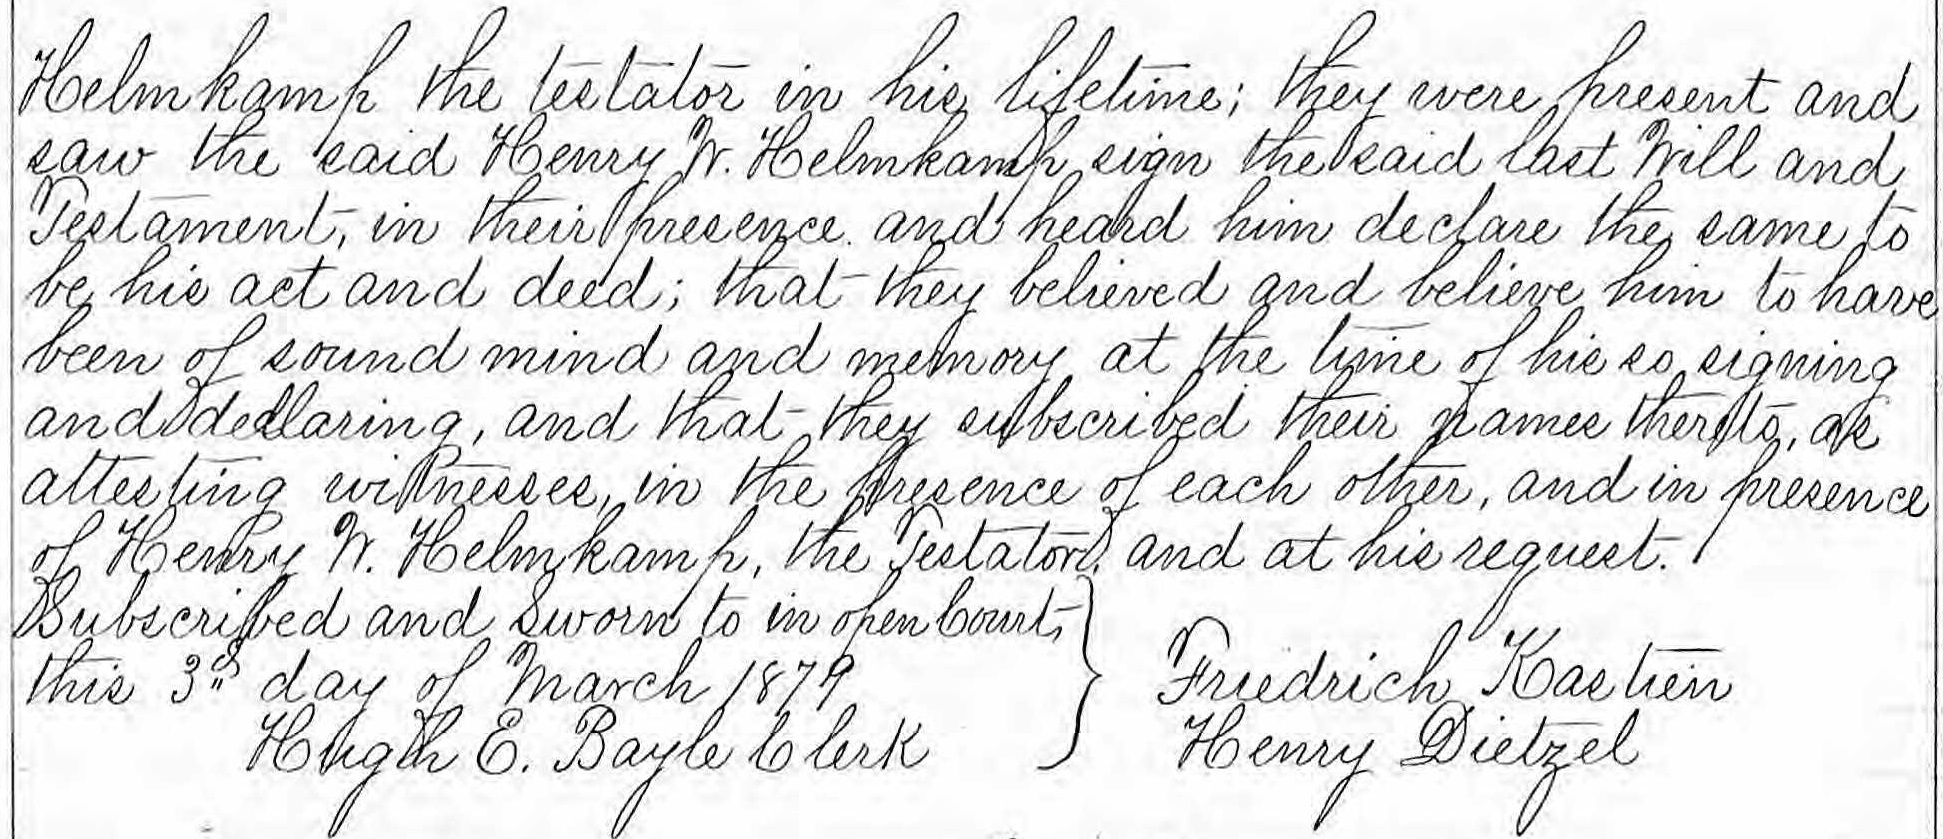 Helmkamp the testator in his lifetime; they were present and
saw the said Henry W. Helmkamp sign the said last Will and
Testament, in their presence and heard him declare the same to
be his act and deed; that they believed and believe him to have
been of sound mind and memory at the time of his so signing
and declaring, and that they subscribed their names thereto, as
attesting witnesses, in the presence of each other, and in presence
of Henry W. Helmkamp, the Testator, and at his request.
Subscribed and Sworn to in open Court,
this 3d day of March 1879
Hugh E. Bayle Clerk
Friedrich Kastien
Henry Dietzel